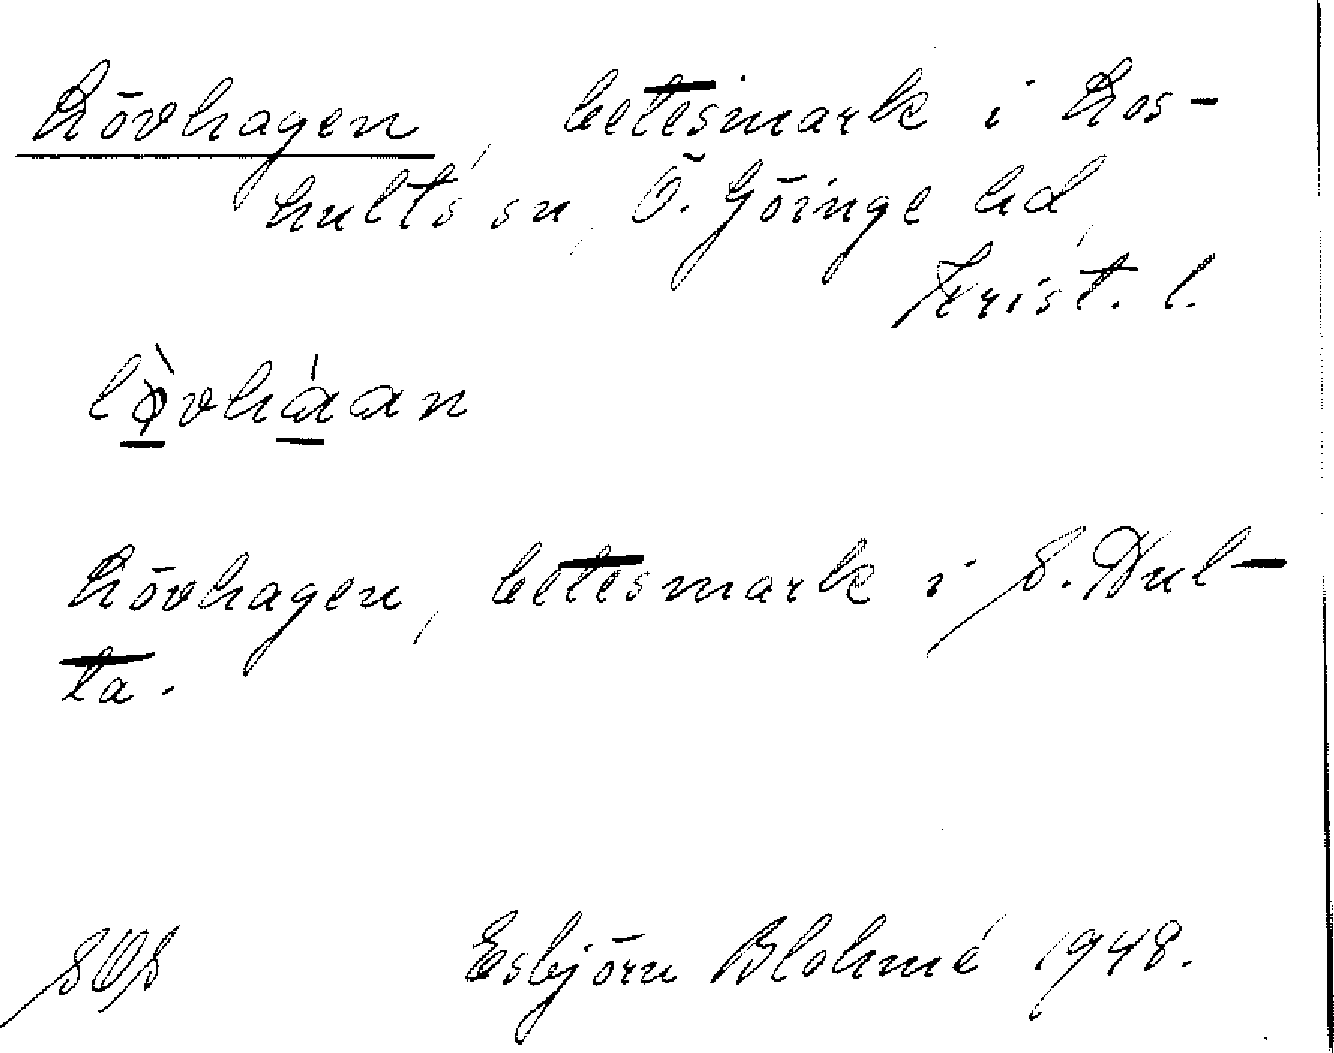 Lövhagen, betesmark i Los-
hults sn, Ö. Göinge hd,
Krist. l.
lø̀vháan
Lövhagen, betesmark i S. Hul-
ta.
Esbjörn Blohmé 1948.